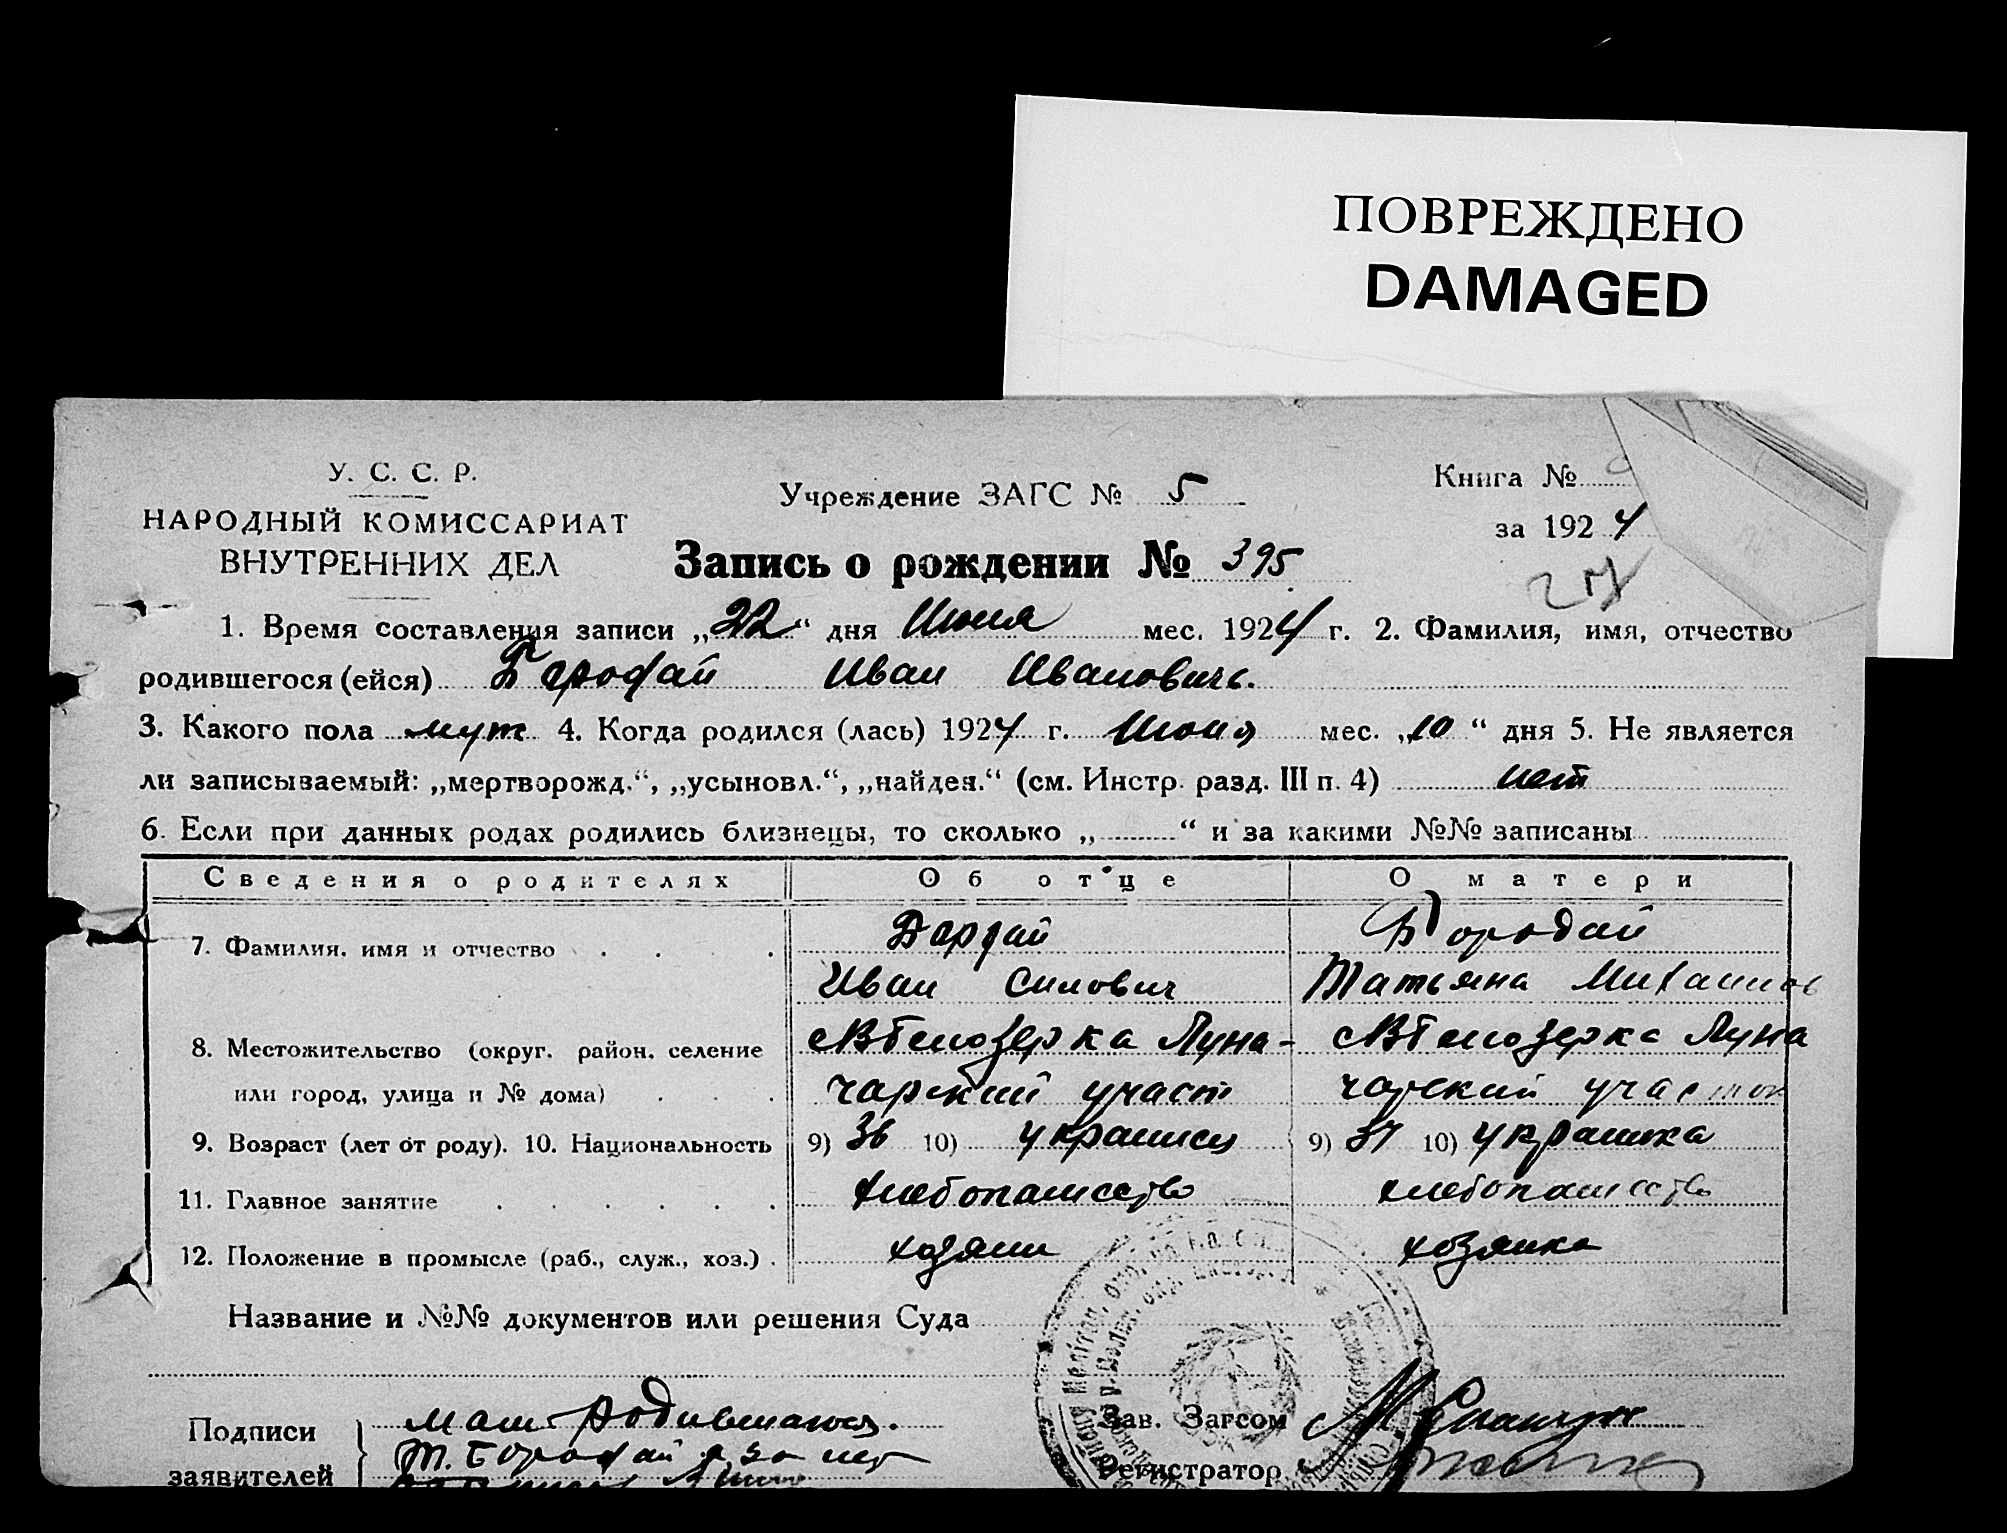 ПОВРЕЖДЕНО
DAMAGED
У. С. С. Р.
НАРОДНЫЙ КОМИССАРИАТ
ВНУТРЕННИХ ДЕЛ
Учреждение ЗАГС № 5
Книга №
за 1924
Запись о рождении № 395
1. Время составления записи „22“ дня Июня мес. 1924 г. 2. Фамилия, имя, отчество
родившегося (ейся) Бородай Иван Иванович.
3. Какого пола муж 4. Когда родился (лась) 1924 г. Июня мес. „10“ дня 5. Не является
ли записываемый: „мертворожд.“, „усыновл.“, „найден.“ (см. Инстр. разд. III п. 4) нет
6. Если при данных родах родились близнецы, то сколько „ “ и за какими №№ записаны
Сведения о родителях Об отце О матери
7. Фамилия, имя и отчество Бородай Бородай
Иван Силович Татьяна Михайлов
8. Местожительство (округ. район. селение или город, улица и № дома) сВБелозерка Луна- сВБелозерка Луна
чарский участ чарский участок
9. Возраст (лет от роду). 10. Национальность 9) 36 10) украинец 9) 37 10) украинка
11. Главное занятие хлебопашество хлебопашество
12. Положение в промысле (раб., служ., хоз.) хозяин хозяйка
Название и №№ документов или решения Суда
Подписи
заявителей
мать родившагося.
Т. Бородай а за нее
Зав. Загсом
Регистратор